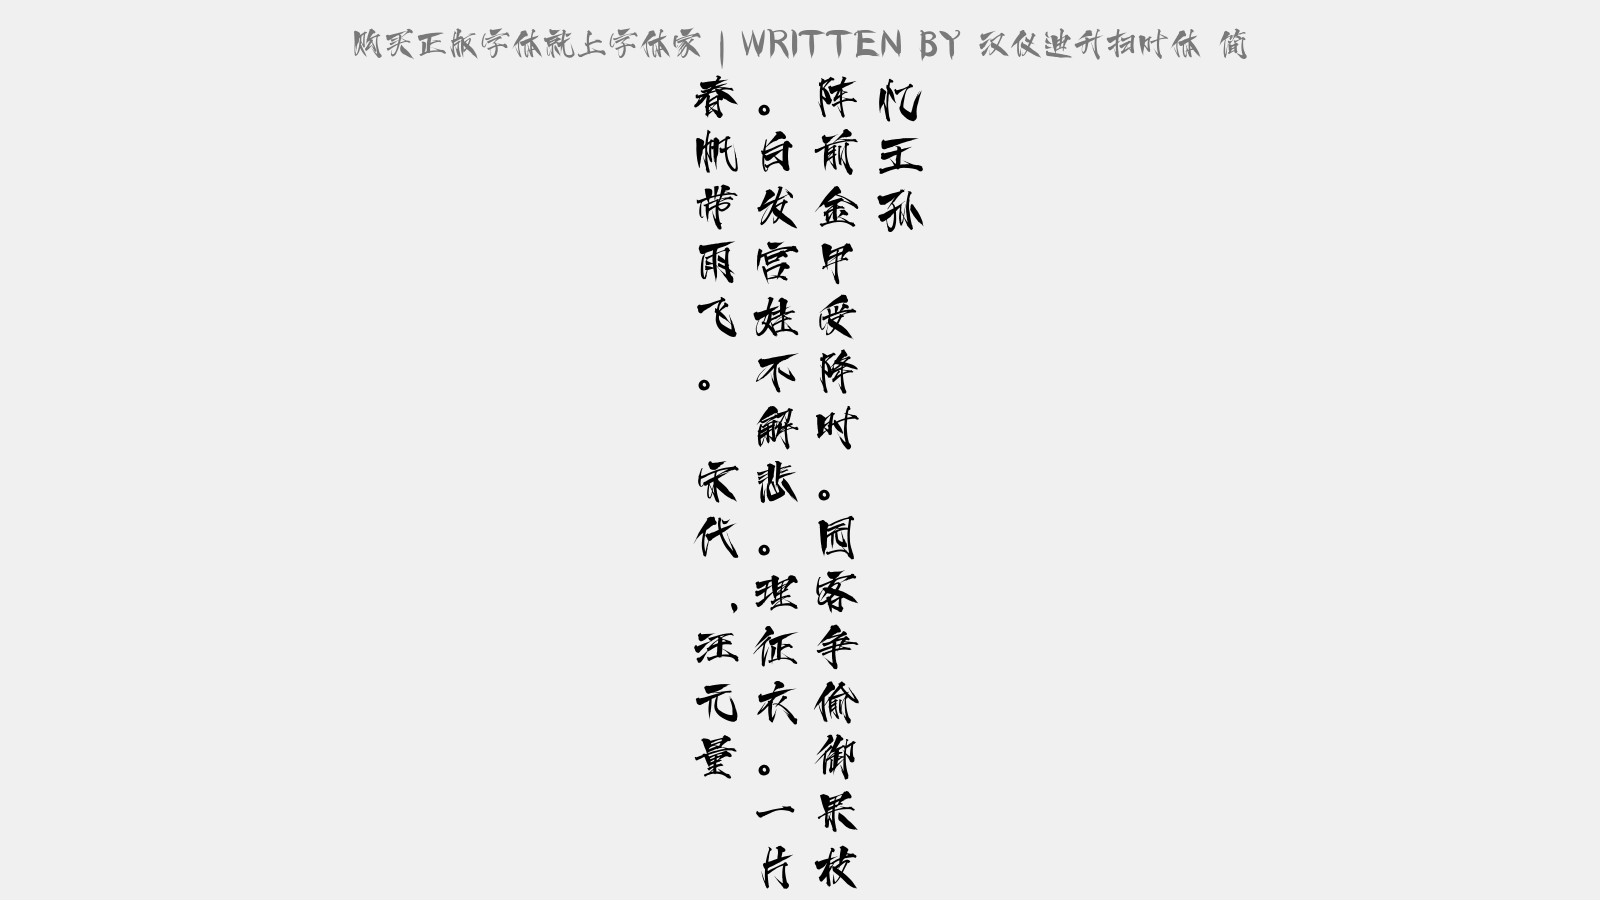 购买正版字体就上字体家 | WRITTEN BY 汉仪迪升扫叶体 简
忆王孙
阵前金甲受降时。园客争偷御果枝
。白发宫娃不解悲。理征衣。一片
春帆带雨飞。 宋代,汪元量